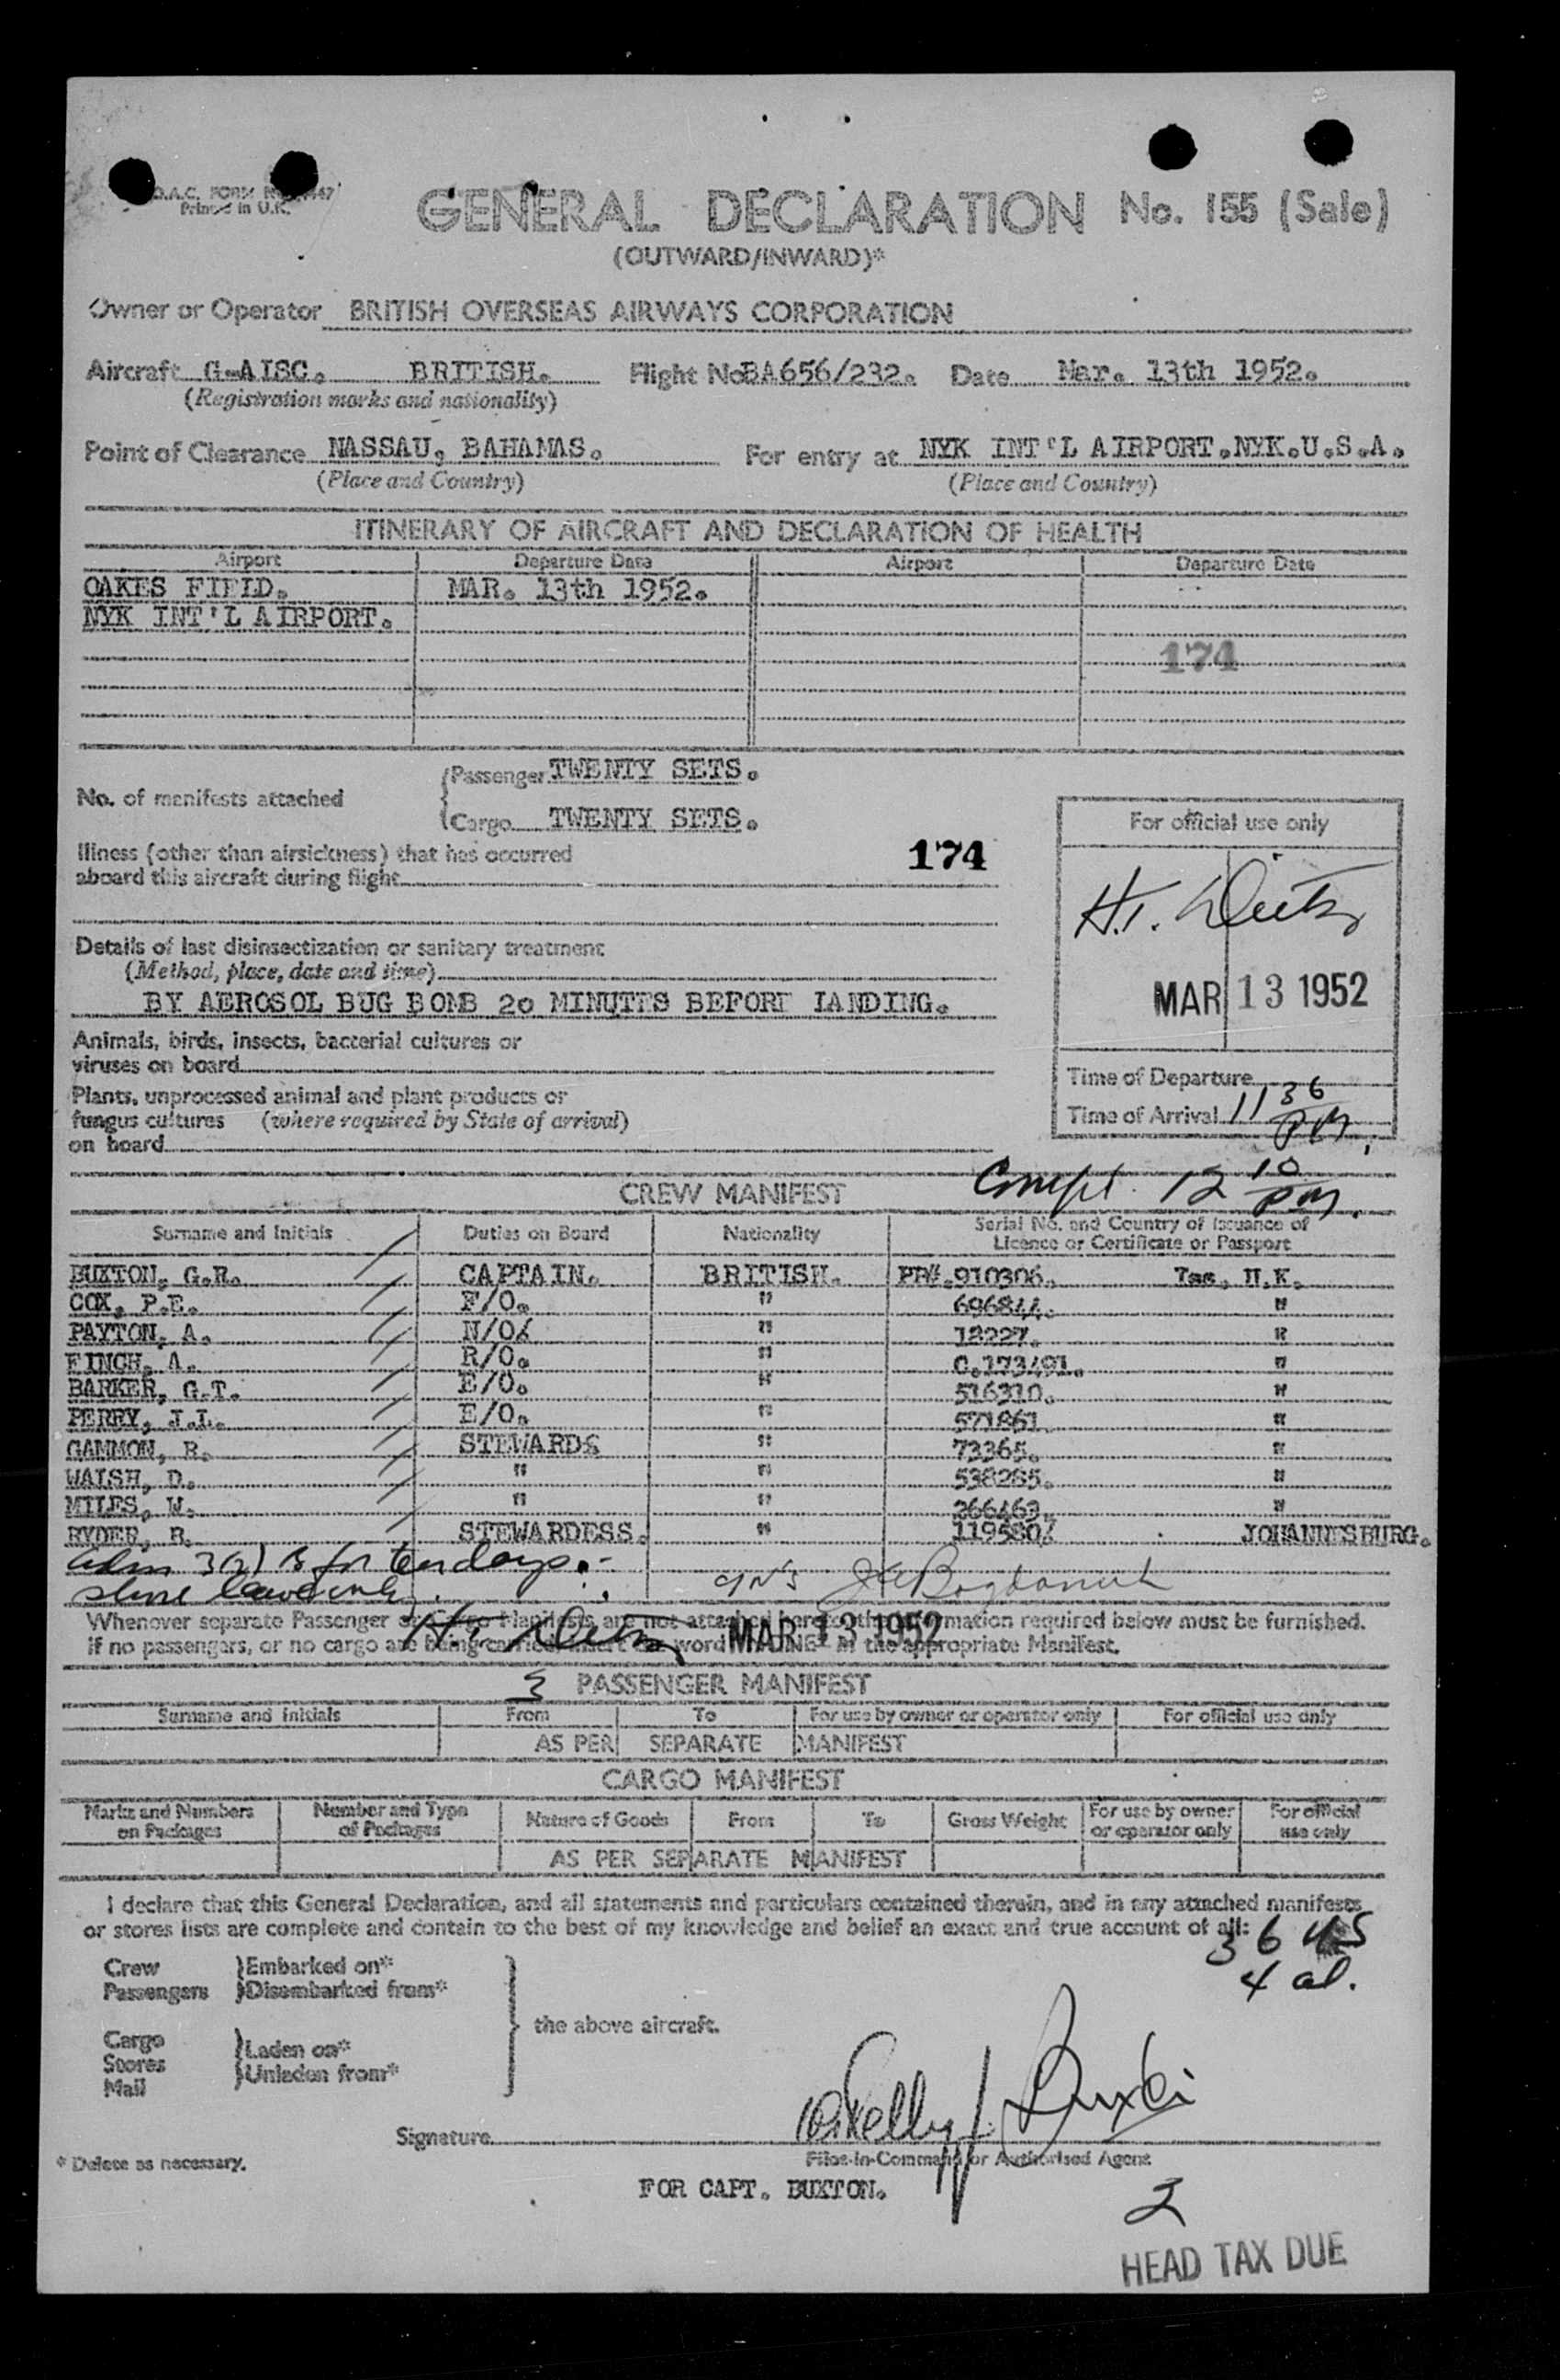 GENERAL DECLARATION No. 155 (Sale)
Printed in U.K.
(OUTWARD/INWARD)*
Owner or Operator BRITISH OVERSEAS AIRWAYS CORPORATION
Aircraft G-AISC. BRITISH. Flight No. BA656/232. Date Mar. 13th 1952.
(Registration marks and nationality)
Point of Clearance NASSAU, BAHAMAS. For entry at NYK INT'L AIRPORT.NYK.U.S.A.
(Place and Country) (Place and Country)
ITINERARY OF AIRCRAFT AND DECLARATION OF HEALTH
Airport Departure Date Airport Departure Date
OAKES FIELD. MAR. 13th 1952.
NYK INT'L AIRPORT.
174
Passenger TWENTY SETS.
No. of manifests attached
Cargo TWENTY SETS.
For official use only
Illness (other than airsickness) that has occurred
aboard this aircraft during flight
174
Details of last disinsectization or sanitary treatment
(Method, place, date and time)
BY AEROSOL BUG BOMB 20 MINUTES BEFORE LANDING.
MAR 13 1952
Animals, birds, insects, bacterial cultures or
viruses on board
Plants, unprocessed animal and plant products or
fungus cultures (where required by State of arrival)
on board
Time of Departure
Time of Arrival 11 36 PM.
Compl. 12 10 PM.
CREW MANIFEST
Surname and Initials Duties on Board Nationality Serial No. and Country of Issuance of
Licence or Certificate or Passport
BUXTON, G.R. CAPTAIN. BRITISH. PP#.910306. Iss. U.K.
COX, P.E. F/O. " 696844. "
PAYTON, A. N/O. " 18227. "
FINCH, A. R/O. " C.173491. "
BARKER, G.T. E/O. " 516310. "
PERRY, J.L. E/O. " 571861. "
GAMMON, R. STEWARDS " 73365. "
WALSH, D. " " 538285. "
MILES, W. " " 266469. "
RYDER, R. STEWARDESS. " 119580. JOHANNESBURG.
Adm 3(2) B for ten days.
shore leave only.
Whenever separate Passenger or Cargo Manifests are not attached hereto the information required below must be furnished.
If no passengers, or no cargo are being carried insert the word in the appropriate Manifest.
MAR 13 1952
3 PASSENGER MANIFEST
Surname and Initials From To For use by owner or operator only For official use only
AS PER SEPARATE MANIFEST
CARGO MANIFEST
Marks and Numbers on Packages Number and Type of Packages Nature of Goods From To Gross Weight For use by owner or operator only For official use only
AS PER SEPARATE MANIFEST
I declare that this General Declaration, and all statements and particulars contained therein, and in any attached manifests
or stores lists are complete and contain to the best of my knowledge and belief an exact and true account of all:
36 US
4 al.
Crew Embarked on*
Passengers Disembarked from*
the above aircraft.
Cargo Laden on*
Stores Unladen from*
Mail
Signature
Pilot-in-Command or Authorised Agent
* Delete as necessary.
FOR CAPT. BUXTON.
2
HEAD TAX DUE